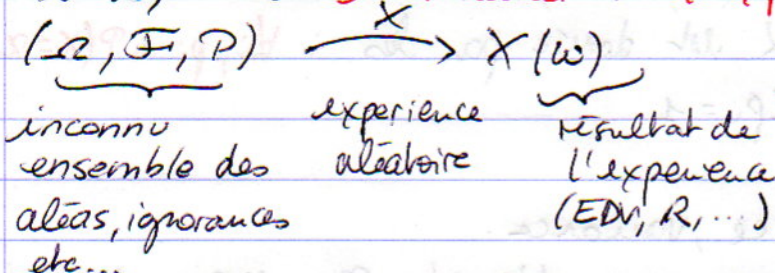 X
(Ω, F, P) → X(ω)
inconnu
ensemble des
aléas, ignorances
etc...
experience
aléatoire
résultat de
l'experience
(EDV, R, ...)